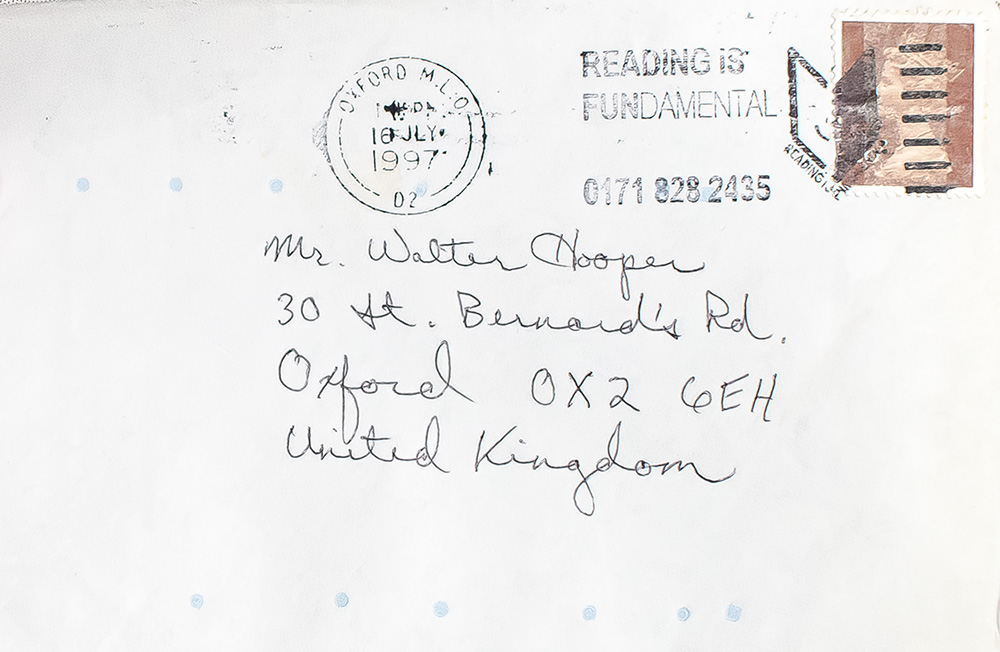 OXFORD M.L.O
16 JLY
1997
D2
READING iS
FUNDAMENTAL
0171 828 2435
READING iS
Mr. Walter Hooper
30 St. Bernard's Rd.
Oxford OX2 6EH
United Kingdom